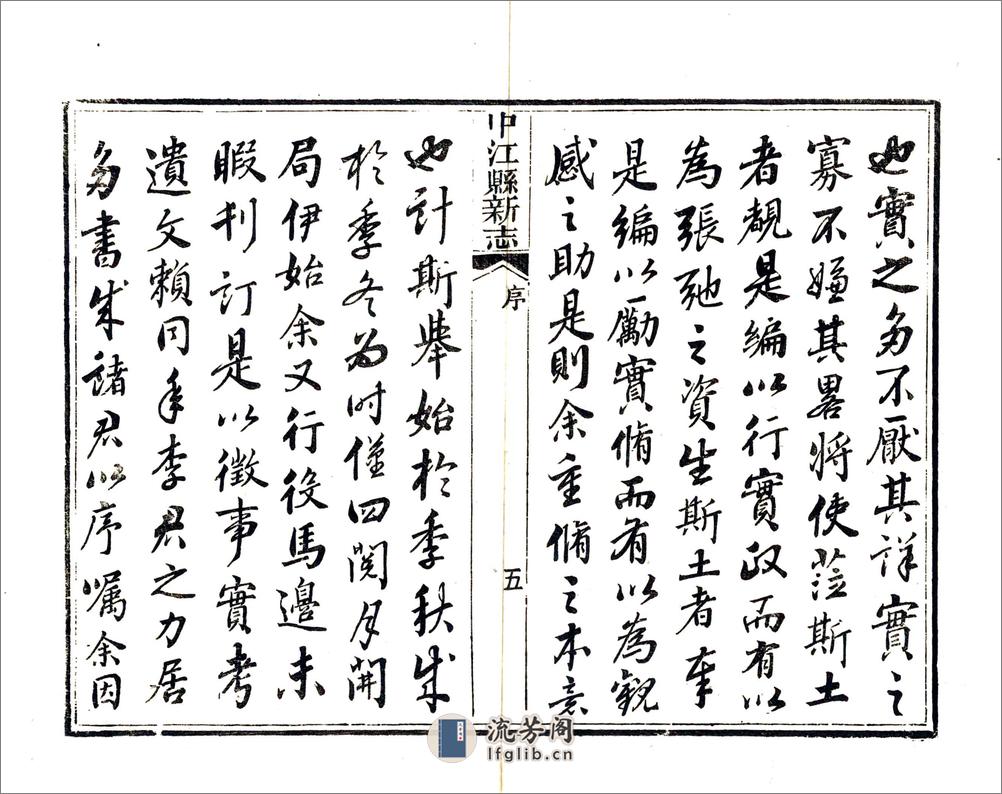 也實之多不厭其詳實之
寡不嫌其畧將使蒞斯土
者覩是編以行實政而有以
為張弛之資生斯土者奉
是編以勵實脩而有以為觀
感之助是則余重脩之本意
中江縣新志
序
五
也計斯舉始於季秋成
於季冬為时僅四閱月開
局伊始余又行役馬邊未
暇刊訂是以徵事實考
遺文賴同年李君之力居
多書成諸君以序嘱余因
流芳阁
lfglib.cn